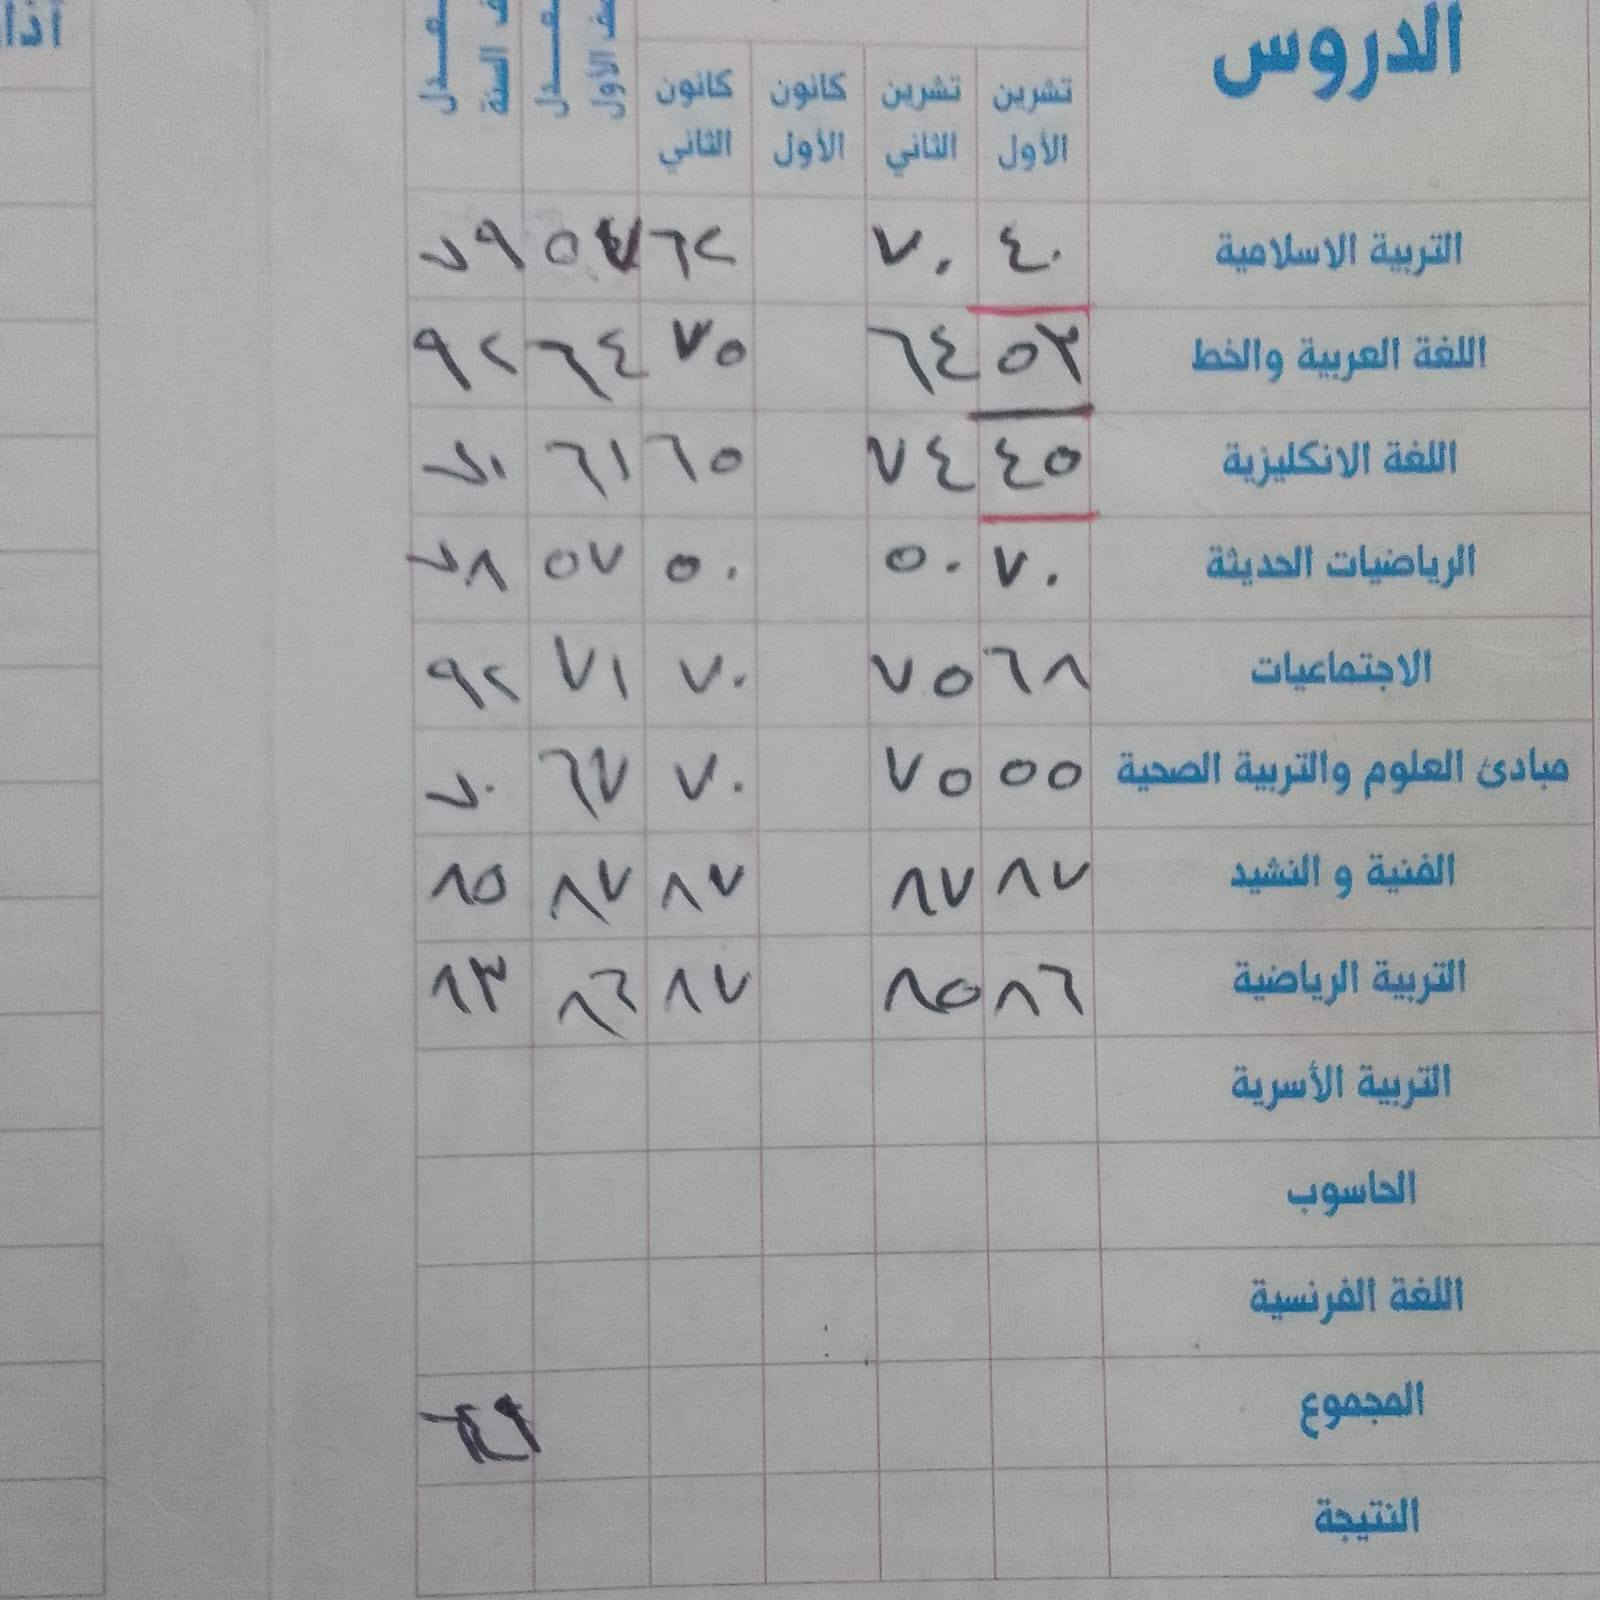 الدروس
تشرين الأول تشرين الثاني كانون الأول كانون الثاني
التربية الاسلامية ٤٠ ٧٠ ٦٢ ٧٩
اللغة العربية والخط ٥٣ ٦٤ ٧٥ ٦٤ ٩٢
اللغة الانكليزية ٤٥ ٧٤ ٦٥ ٦١ ٧١
الرياضيات الحديثة ٧٠ ٥٠ ٥٠ ٥٧ ٧٨
الاجتماعيات ٦٨ ٧٥ ٧٠ ٧١ ٩٢
مبادئ العلوم والتربية الصحية ٥٥ ٧٥ ٧٠ ٦٧ ٧٠
الفنية و النشيد ٨٧ ٨٧ ٨٧ ٨٧ ٨٥
التربية الرياضية ٨٦ ٨٥ ٨٧ ٨٦ ٨٣
التربية الأسرية
الحاسوب
اللغة الفرنسية
المجموع
النتيجة